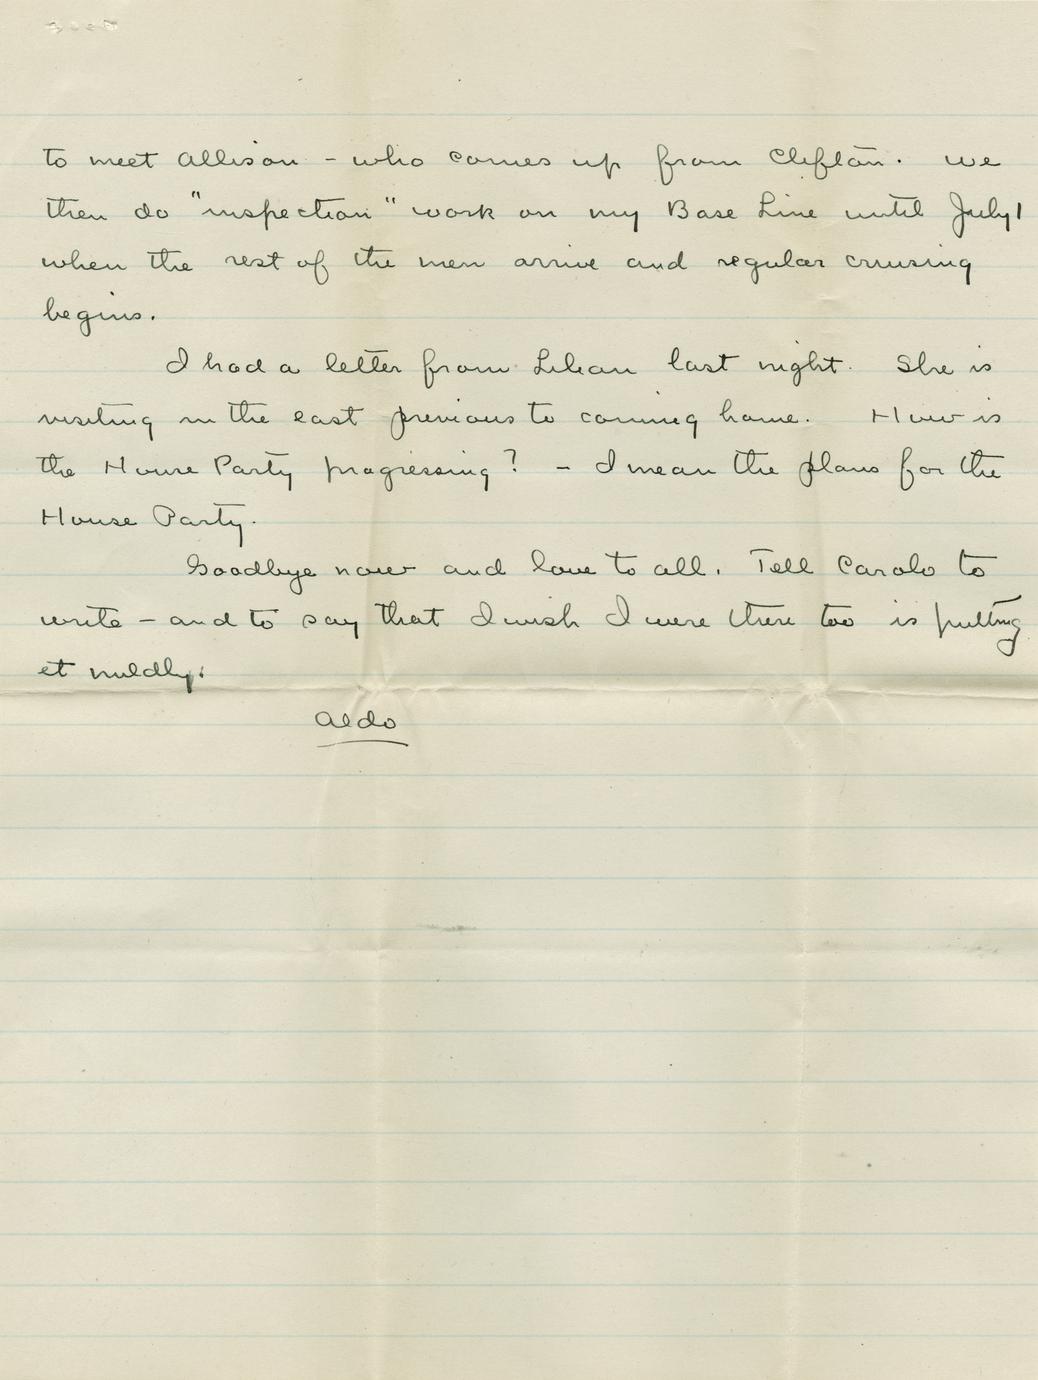 to meet Allison - who comes up from Clifton. we
then do "inspection" work on my Base Line until July 1
when the rest of the men arrive and regular cruising
begins.
I had a letter from Lilian last night. She is
visiting in the east previous to coming home. How is
the House Party progressing? - I mean the plans for the
House Party.
Goodbye now and love to all. Tell Carolo to
write - and to say that I wish I were there too is putting
it mildly.
Aldo